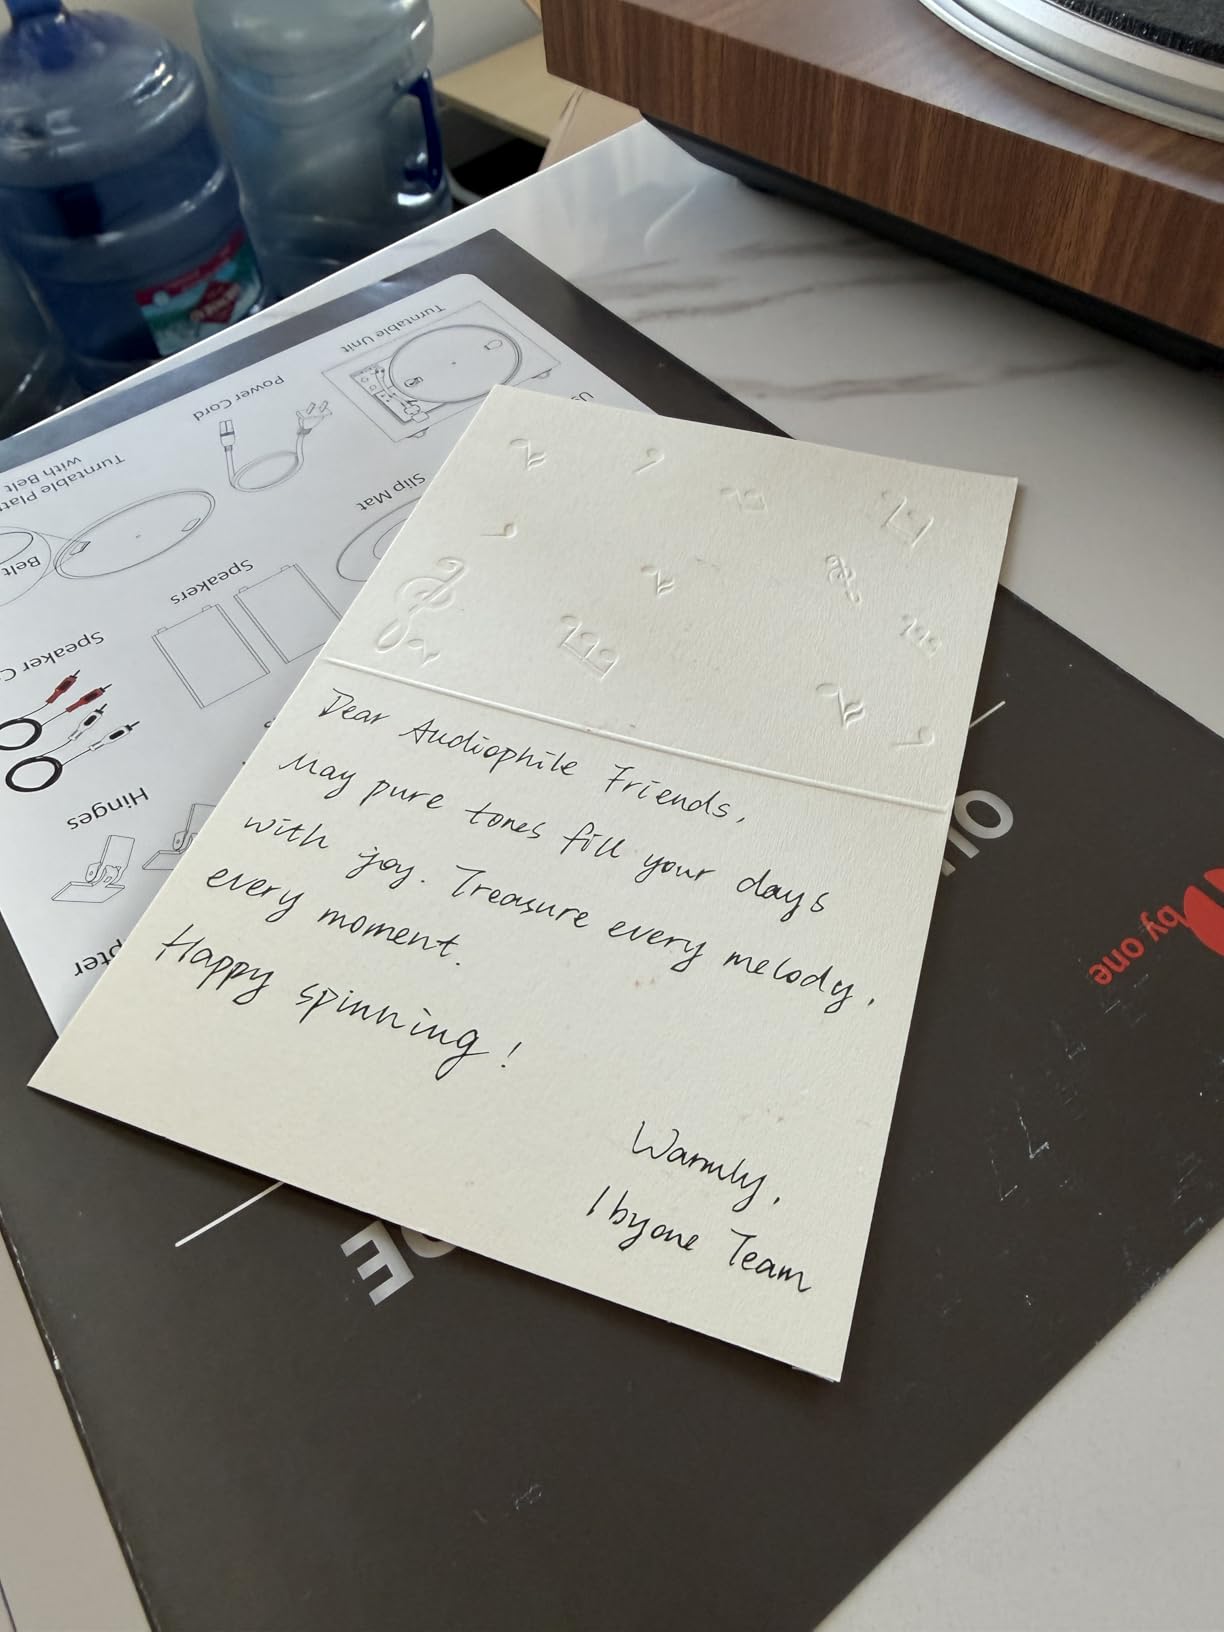 Dear Audiophile Friends,
May pure tones fill your days
with joy. Treasure every melody,
every moment.
Happy spinning!
Warmly,
1byone Team
Turntable Unit
Power Cord
with Belt
Turntable
Slip Mat
Belt
Speakers
Speaker
Hinges
by one